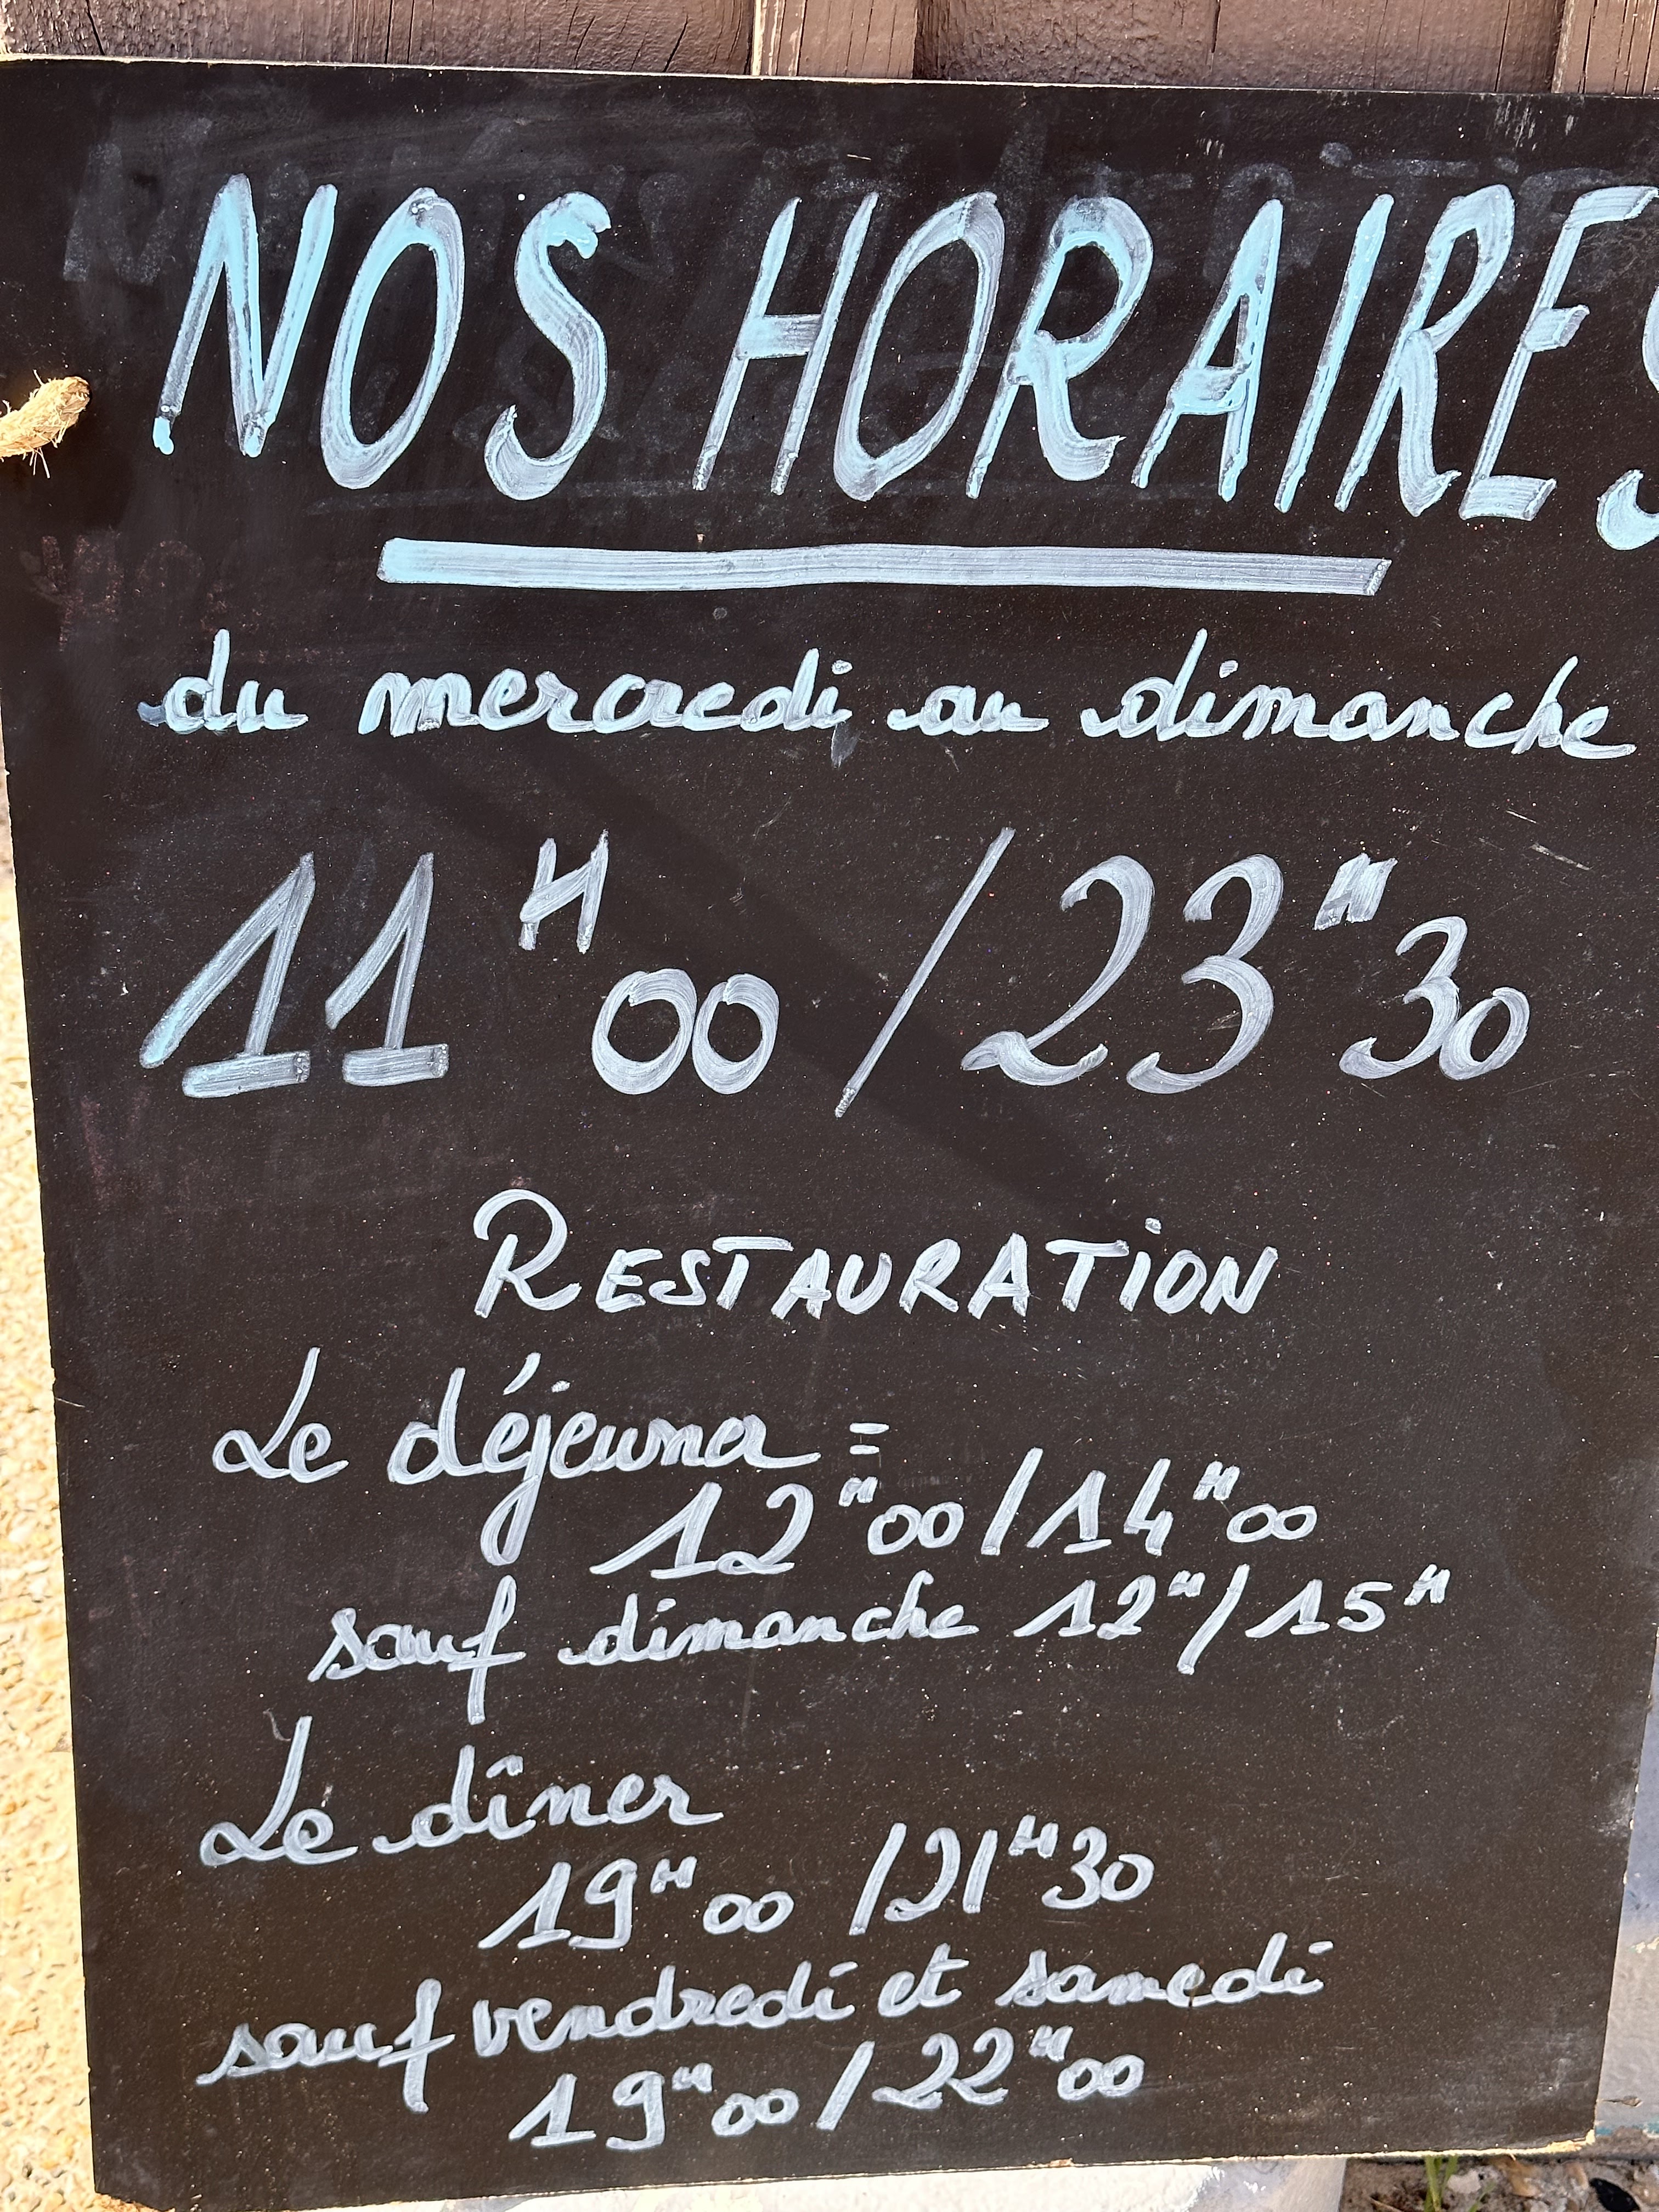 NOS HORAIRES
du mercredi au dimanche
11H00 / 23H30
RESTAURATION
Le déjeuner =
12H00 / 14H00
sauf dimanche 12H / 15H
Le dîner
19H00 / 21H30
sauf vendredi et samedi
19H00 / 22H00